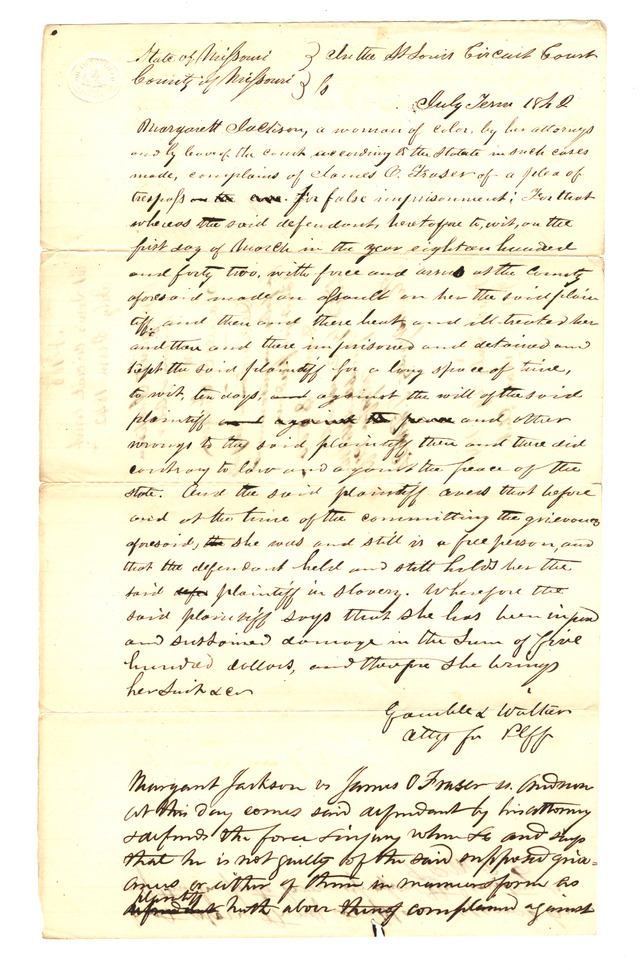 State of Missouri } In the St Louis Circuit Court
County of Missouri } ss
July Term 1842
Margarett Jackson, a woman of color, by her attorneys
and by leave of the court according to the statute in such cases
made, complains of James O. Fraser of a plea of
trespass on the case for false imprisonment; For that
whereas the said defendant, heretofore to wit, on the
first day of March in the year eighteen hundred
and forty two, with force and arms at the County
aforesaid made an assault on her the said plain
tiff, and then and there beat, and ill-treated her
and then and there imprisoned and detained and
kept the said plaintiff for a long space of time,
to wit, ten days, and against the will of the said
plaintiff and against the peace and other
wrongs to the said plaintiff then and there did
contrary to law and against the peace of the
state. And the said plaintiff avers that before
and at the time of the committing the grievances
aforesaid, the she was and still is a free person, and
that the defendant held and still holds her the
said defe plaintiff in slavery. Wherefore the
said plaintiff says that she has been injured
and sustained damage in the sum of five
hundred dollars, and therefore she brings
her suit &c
Gamble & Walker
Attys for Plff
Margaret Jackson vs James O Fraser
at this day comes said defendant by his attorney
& defends the force & injury when &c and says
that he is not guilty of the said supposed griev=
ances or either of them in manner & form as
plaintiff
defendant hath above complained against